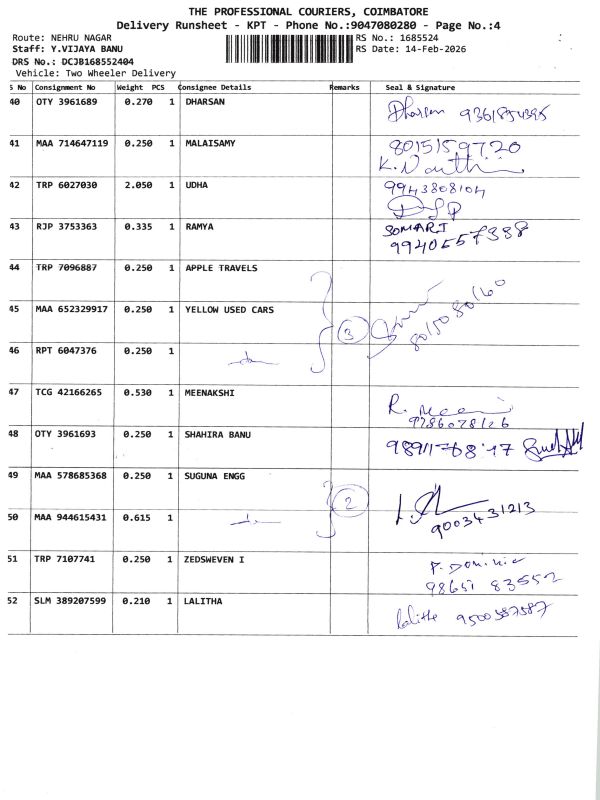 THE PROFESSIONAL COURIERS, COIMBATORE
Delivery Runsheet - KPT - Phone No.:9047080280 - Page No.:4
Route: NEHRU NAGAR
RS No.: 1685524
Staff: Y.VIJAYA BANU
RS Date: 14-Feb-2026
DRS No.: DCJB168552404
Vehicle: Two Wheeler Delivery
S No Consignment No Weight PCS Consignee Details Remarks Seal & Signature
40 OTY 3961689 0.270 1 DHARSAN Dharsan 9361854395
41 MAA 714647119 0.250 1 MALAISAMY 8015159720
K.
42 TRP 6027030 2.050 1 UDHA 9943808104
43 RJP 3753363 0.335 1 RAMYA
9940557388
44 TRP 7096887 0.250 1 APPLE TRAVELS
45 MAA 652329917 0.250 1 YELLOW USED CARS 3 8015080160
46 RPT 6047376 0.250 1
47 TCG 42166265 0.530 1 MEENAKSHI R.
9786078126
48 OTY 3961693 0.250 1 SHAHIRA BANU
49 MAA 578685368 0.250 1 SUGUNA ENGG 2
50 MAA 944615431 0.615 1 9003431213
51 TRP 7107741 0.250 1 ZEDSWEVEN I P. Dominic
98651 83552
52 SLM 389207599 0.210 1 LALITHA Lalitha 9500587587